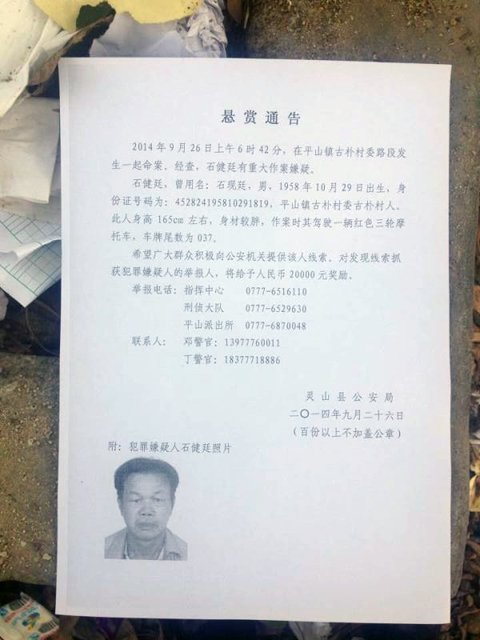 悬赏通告
2014年9月26日上午6时42分，在平山镇古朴村委路段发
生一起命案。经查，石健廷有重大作案嫌疑。
石健廷，曾用名：石现廷，男，1958年10月29日出生，身
份证号码为：452824195810291819，平山镇古朴村委古朴村人。
此人身高165cm左右，身材较胖，作案时其驾驶一辆红色三轮摩
托车，车牌尾数为037。
希望广大群众积极向公安机关提供该人线索。对发现线索抓
获犯罪嫌疑人的举报人，将给予人民币20000元奖励。
举报电话：指挥中心 0777-6516110
刑侦大队 0777-6529630
平山派出所 0777-6870048
联系人： 邓警官：13977760011
丁警官：18377718886
灵山县公安局
二〇一四年九月二十六日
（百份以上不加盖公章）
附：犯罪嫌疑人石健廷照片